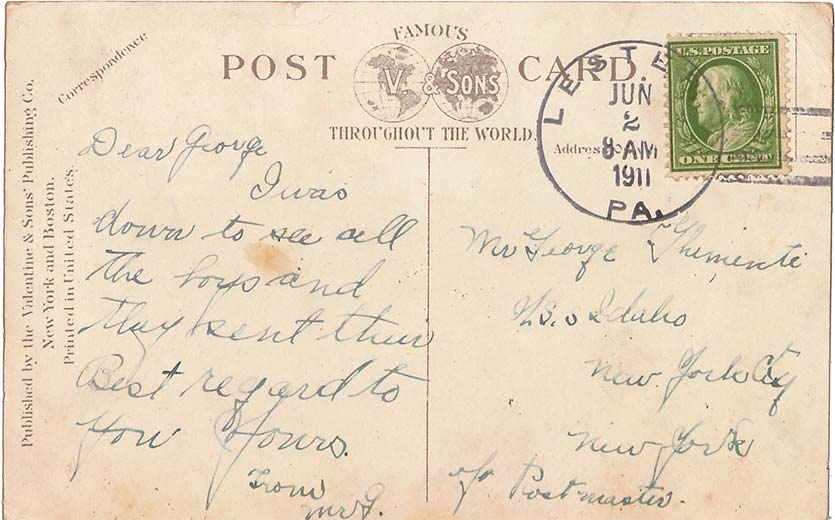 Correspondence
Published by the Valentine & Sons' Publishing Co.
New York and Boston.
Printed in United States.
FAMOUS
POST V. & SONS CARD.
THROUGHOUT THE WORLD.
Address
LESTE
JUN
2
8 AM
1911
PA.
U.S. POSTAGE
ONE CENT
Dear George
I was
down to see all
the boys and
they sent their
Best regard to
you Yours.
From
Mr G.
Mr George
U.S.S Idaho
New York City
New York
c/o Postmaster.